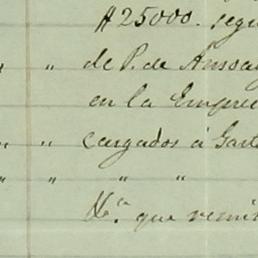 $25000. segu
" " de P. de Ansoa
en la Empre
" " cargados á Gast
" " " "
Na. que remit